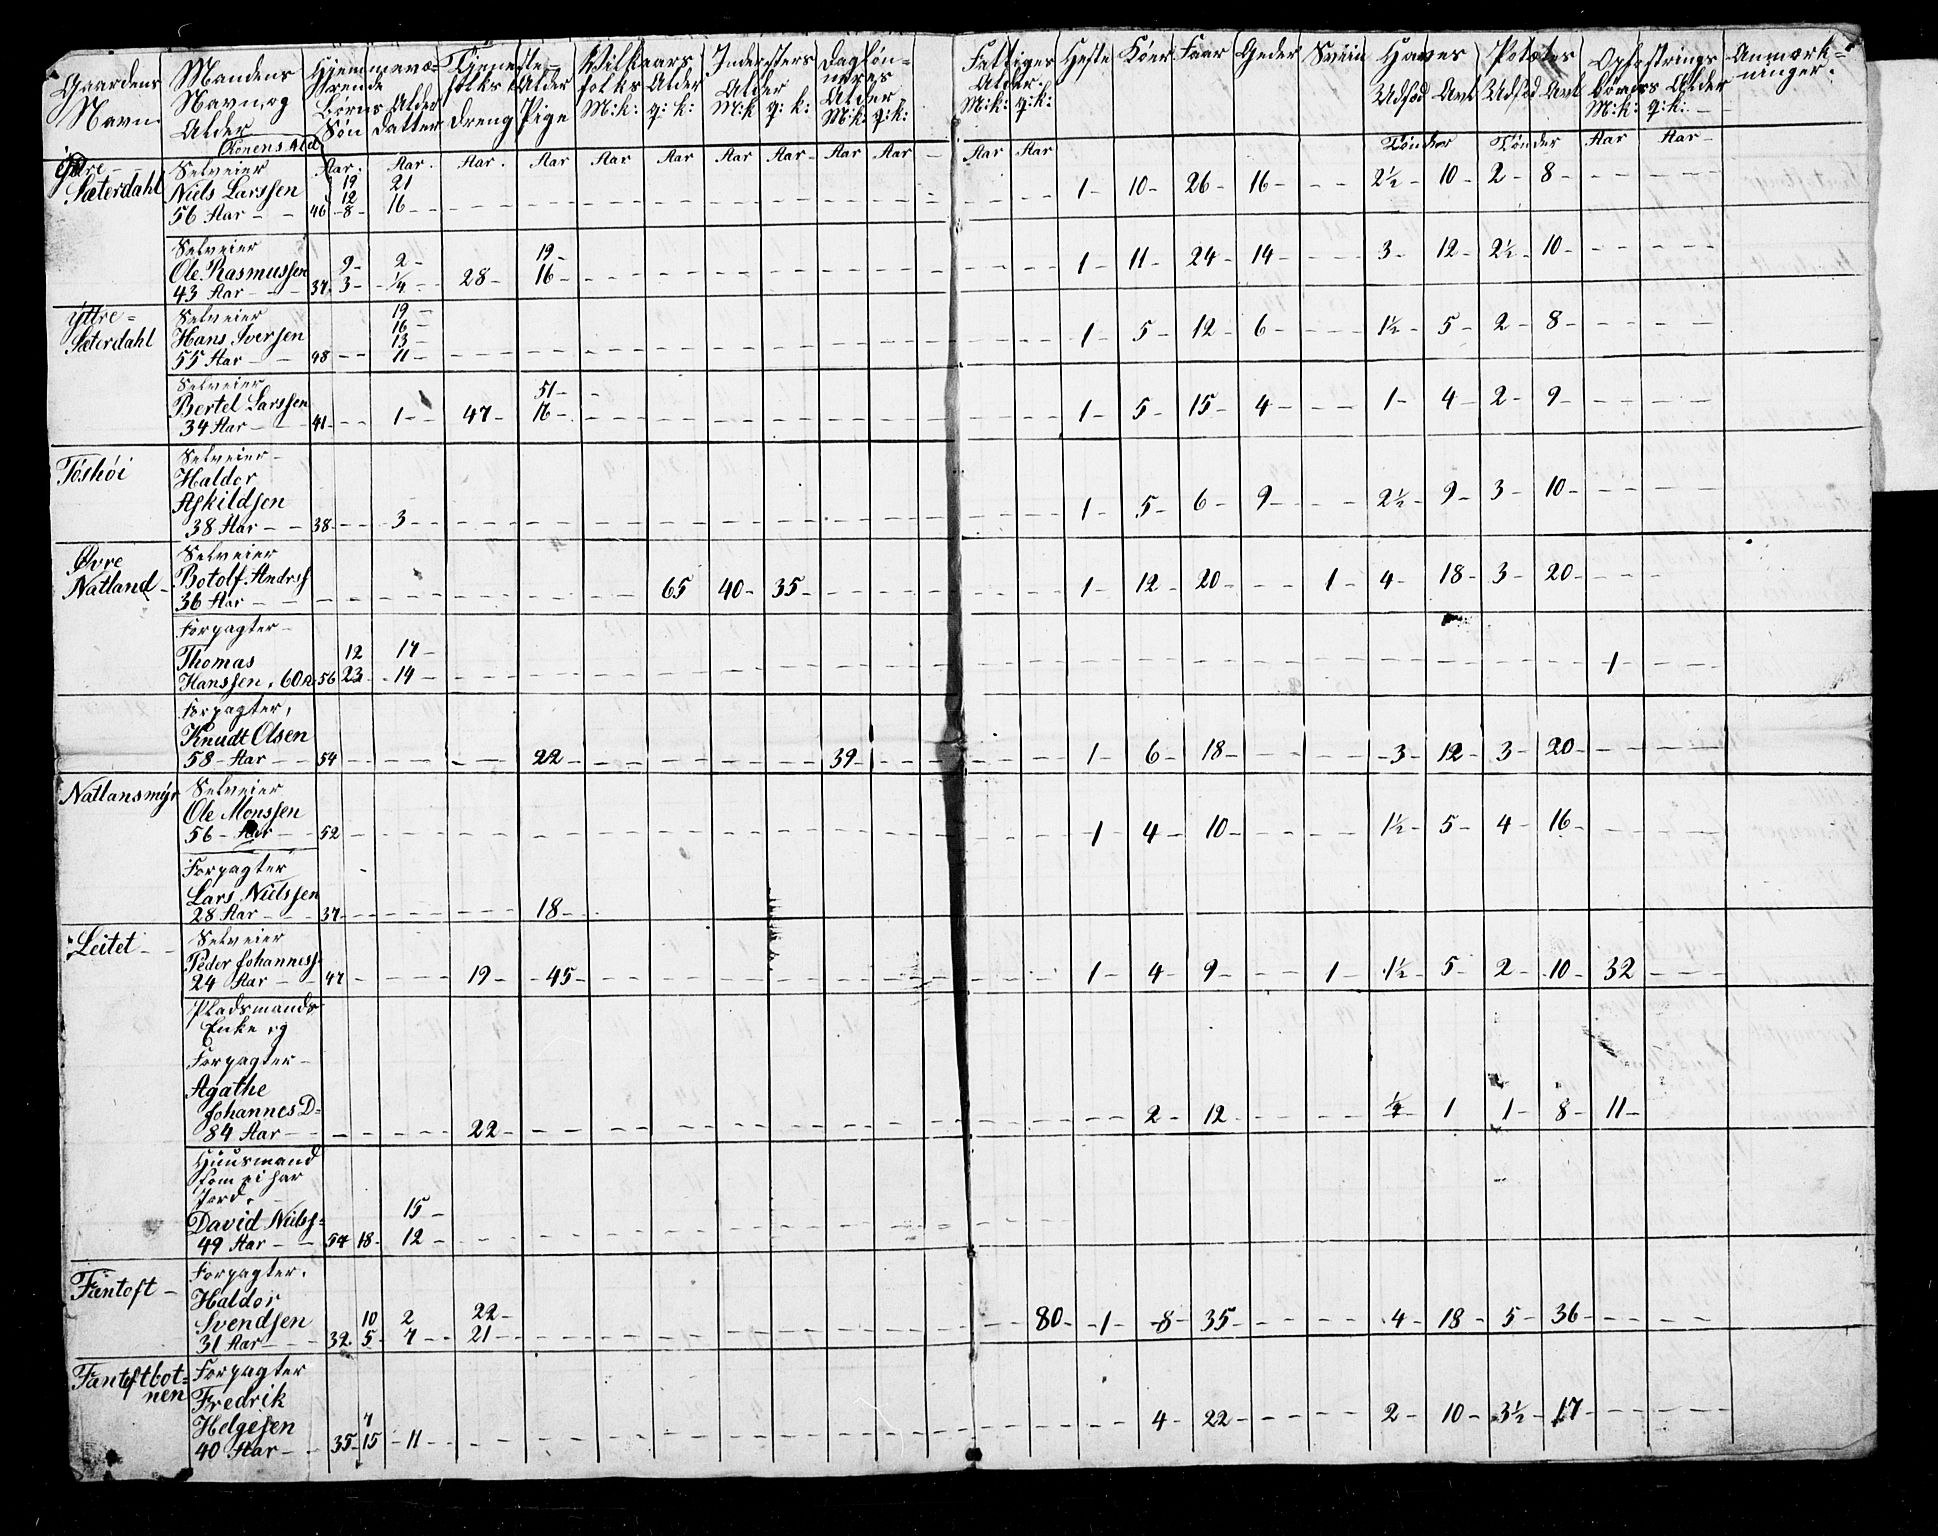 Gaardens Navn | Mandens Navn, og Alder | Konens Ald | Hjemmevæ=rende Börns Alder Søn Datter | Tjeneste=folks Alder Dreng Pige | Vilkaars folks Alder M:k: q:k: | Indersters Alder M:k q:k: | Dagløn=neres Alder M:k: q:k: | Fattiges Alder: M:k: q:k: | Heste | Köer | Faar | Geder | Sviin | Havre Udsæd Avl | Potetes Udsæd Avl | Opfostrings Börns Alder M:k: q:k: | Anmærk=ninger.
Aar. Aar. Aar. Aar Aar Aar Aar Aar Aar Aar — Aar Aar Tønder Tønder Aar Aar
Sæterdahl
Selveier
19 21
Niels Larssen 12 1 10 26 16 2½ 10 2 8
56 Aar 46 8 16
Selveier 19
Ole Rasmussen 9 2 1 11 24 14 3 12 2½ 10
43 Aar 37 3 ¼ 28 16
Yttre= Sæterdahl
Selveier 19
Hans Iversen 16 13 1 5 12 6 1½ 5 2 8
55 Aar 48 11
Selveier 51
Bertel Larssen 1 5 15 4 1 4 2 9
34 Aar 41 1 47 16
Töshöi
Selveier
Haldor
Askildsen 1 5 6 9 2½ 9 3 10
38 Aar 38 3
Øvre Natland
Selveier
Botolf Andrs 65 40 35 1 12 20 1 4 18 3 20
36 Aar
Forpagter
Thomas 12 17
Hanssen, 60 A 56 23 14 1
Forpagter,
Knudt Olsen 1 6 18 3 12 3 20
58 Aar 54 22 39
Natlansmyr
Selveier
Ole Monssen 1 4 10 1½ 5 4 16
56 Aar 52
Forpagter
Lars Nielssen
28 Aar 37 18
Leitet
Selveier
Peder Johanness 1 4 9 1 1½ 5 2 10 32
24 Aar 47 19 45
Pladsmands
Enke og
Forpagter
Agathe
Johannes D= 2 12 ¼ 1 1 8 11
84 Aar 22
Huusmand
som ei har
Jord.
David Niels= 15
49 Aar 54 18 12
Fantoft
Forpagter.
Haldor
Svendsen 10 2 22 80 1 8 35 4 18 5 36
31 Aar 32 5 7 21
Fantoftbot=nen
Forpagter
Fredrik
Helgesen 7 4 22 2 10 3½ 17
40 Aar 35 15 11